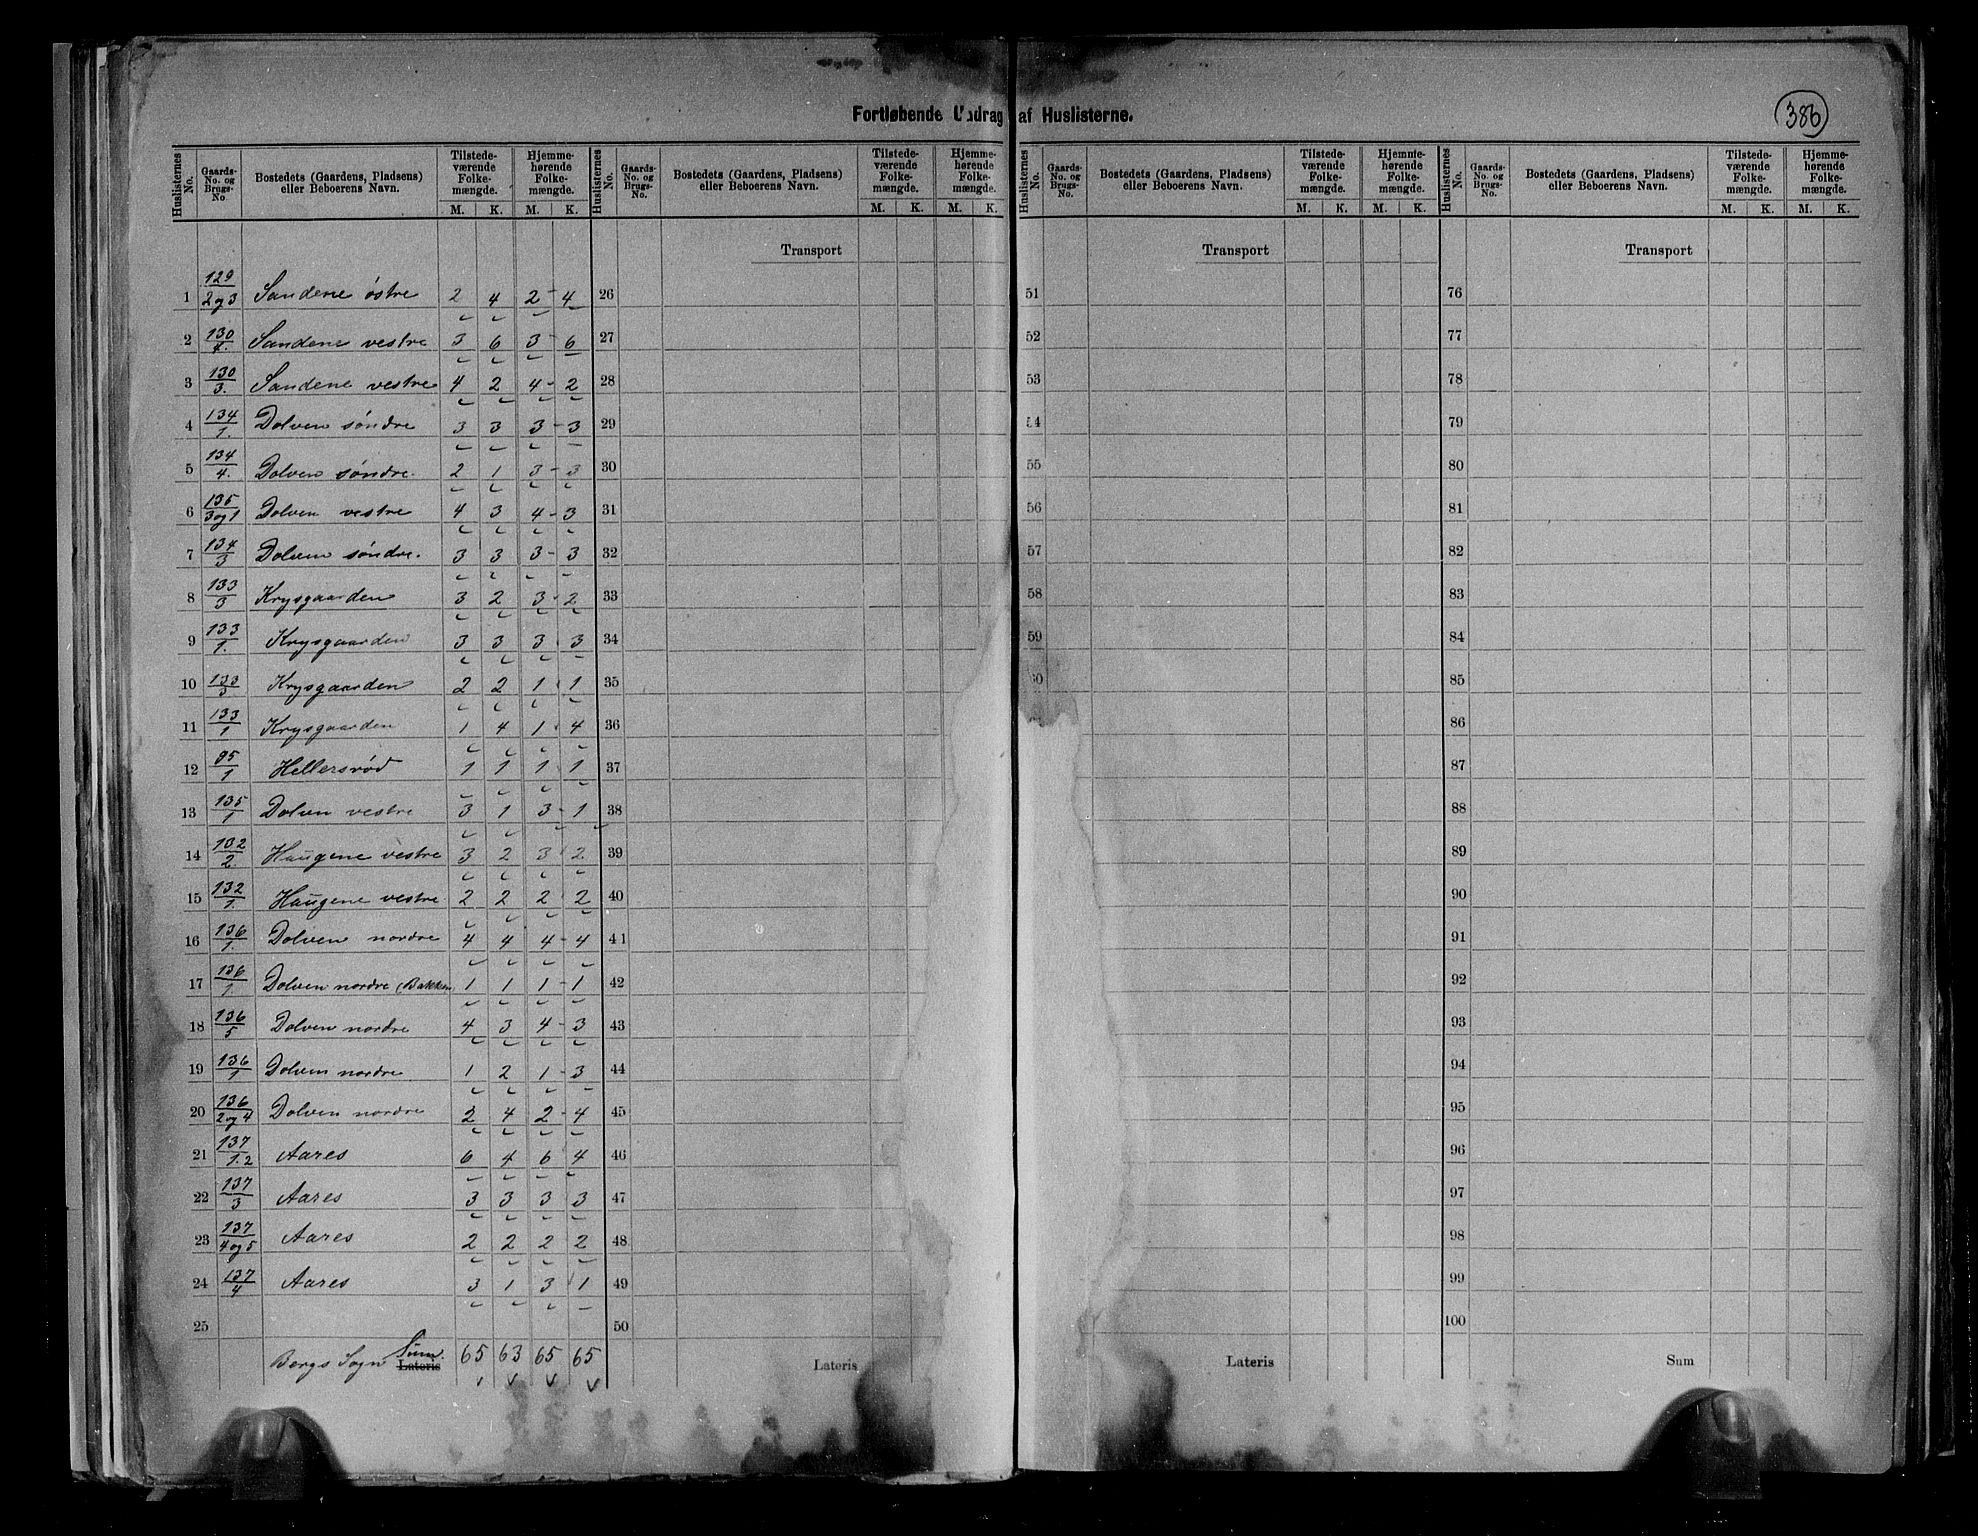 Fortløbende Uddrag af Huslisterne.
386
Huslisternes No. | Gaards-No. og Brugs-No | Bostedets (Gaardens, Pladsens) eller Beboerens Navn. | Tilstedeværende Folkemængde. M. K. | Hjemmehørende Folkemængde. M. K.
1 129/2og3 Sandene østre 2 4 2 - 4
2 130/4. Sandene vestre 3 6 3 - 6
3 130/3. Sandene vestre 4 2 4 - 2
4 134/1. Dolven søndre 3 3 3 - 3
5 134/4. Dolven søndre. 2 1 3 - 3
6 135/3og1 Dolven vestre 4 3 4 - 3
7 134/3 Dolven søndre. 3 3 3 - 3
8 133/3 Krysgaarden 3 2 3 - 2
9 133/1. Krysgaarden 3 3 3 3
10 133/3 Krysgaarden 2 2 1 1
11 133/1 Krysgaarden 1 4 1 4
12 95/1 Hellersrød 1 1 1 1
13 135/1 Dolven vestre 3 1 3 - 1
14 132/2. Haugene vestre 3 2 3 2
15 132/1. Haugene vestre 2 2 2 2
16 136/1. Dolven nordre 4 4 4 - 4
17 136/1. Dolven nordre (Bakken 1 1 1 - 1
18 136/5 Dolven nordre 4 3 4 - 3
19 136/1 Dolven nordre 1 2 1 - 3
20 136/2og4 Dolven nordre 2 4 2 - 4
21 137/1.2 Aares 6 4 6 4
22 137/3 Aares 3 3 3 3
23 137/4og5 Aares 2 2 2 2
24 137/4 Aares 3 1 3 1
25
Bergs Sogn Sum. Lateris 65 63 65 65
Huslisternes No. | Gaards-No. og Brugs-No. | Bostedets (Gaardens, Pladsens) eller Beboerens Navn. | Tilstedeværende Folkemængde. M. K. | Hjemmehørende Folkemængde. M. K.
Transport
26
27
28
29
30
31
32
33
34
35
36
37
38
39
40
41
42
43
44
45
46
47
48
49
50
Lateris
Huslisternes No. | Gaards-No. og Brugs-No. | Bostedets (Gaardens, Pladsens) eller Beboerens Navn. | Tilstedeværende Folkemængde. M. K. | Hjemmehørende Folkemængde. M. K.
Transport
51
52
53
54
55
56
57
58
59
60
Lateris
Huslisternes No. | Gaards-No. og Brugs-No. | Bostedets (Gaardens, Pladsens) eller Beboerens Navn. | Tilstedeværende Folkemængde. M. K. | Hjemmehørende Folkemængde. M. K.
Transport
76
77
78
79
80
81
82
83
84
85
86
87
88
89
90
91
92
93
94
95
96
97
98
99
100
Sum